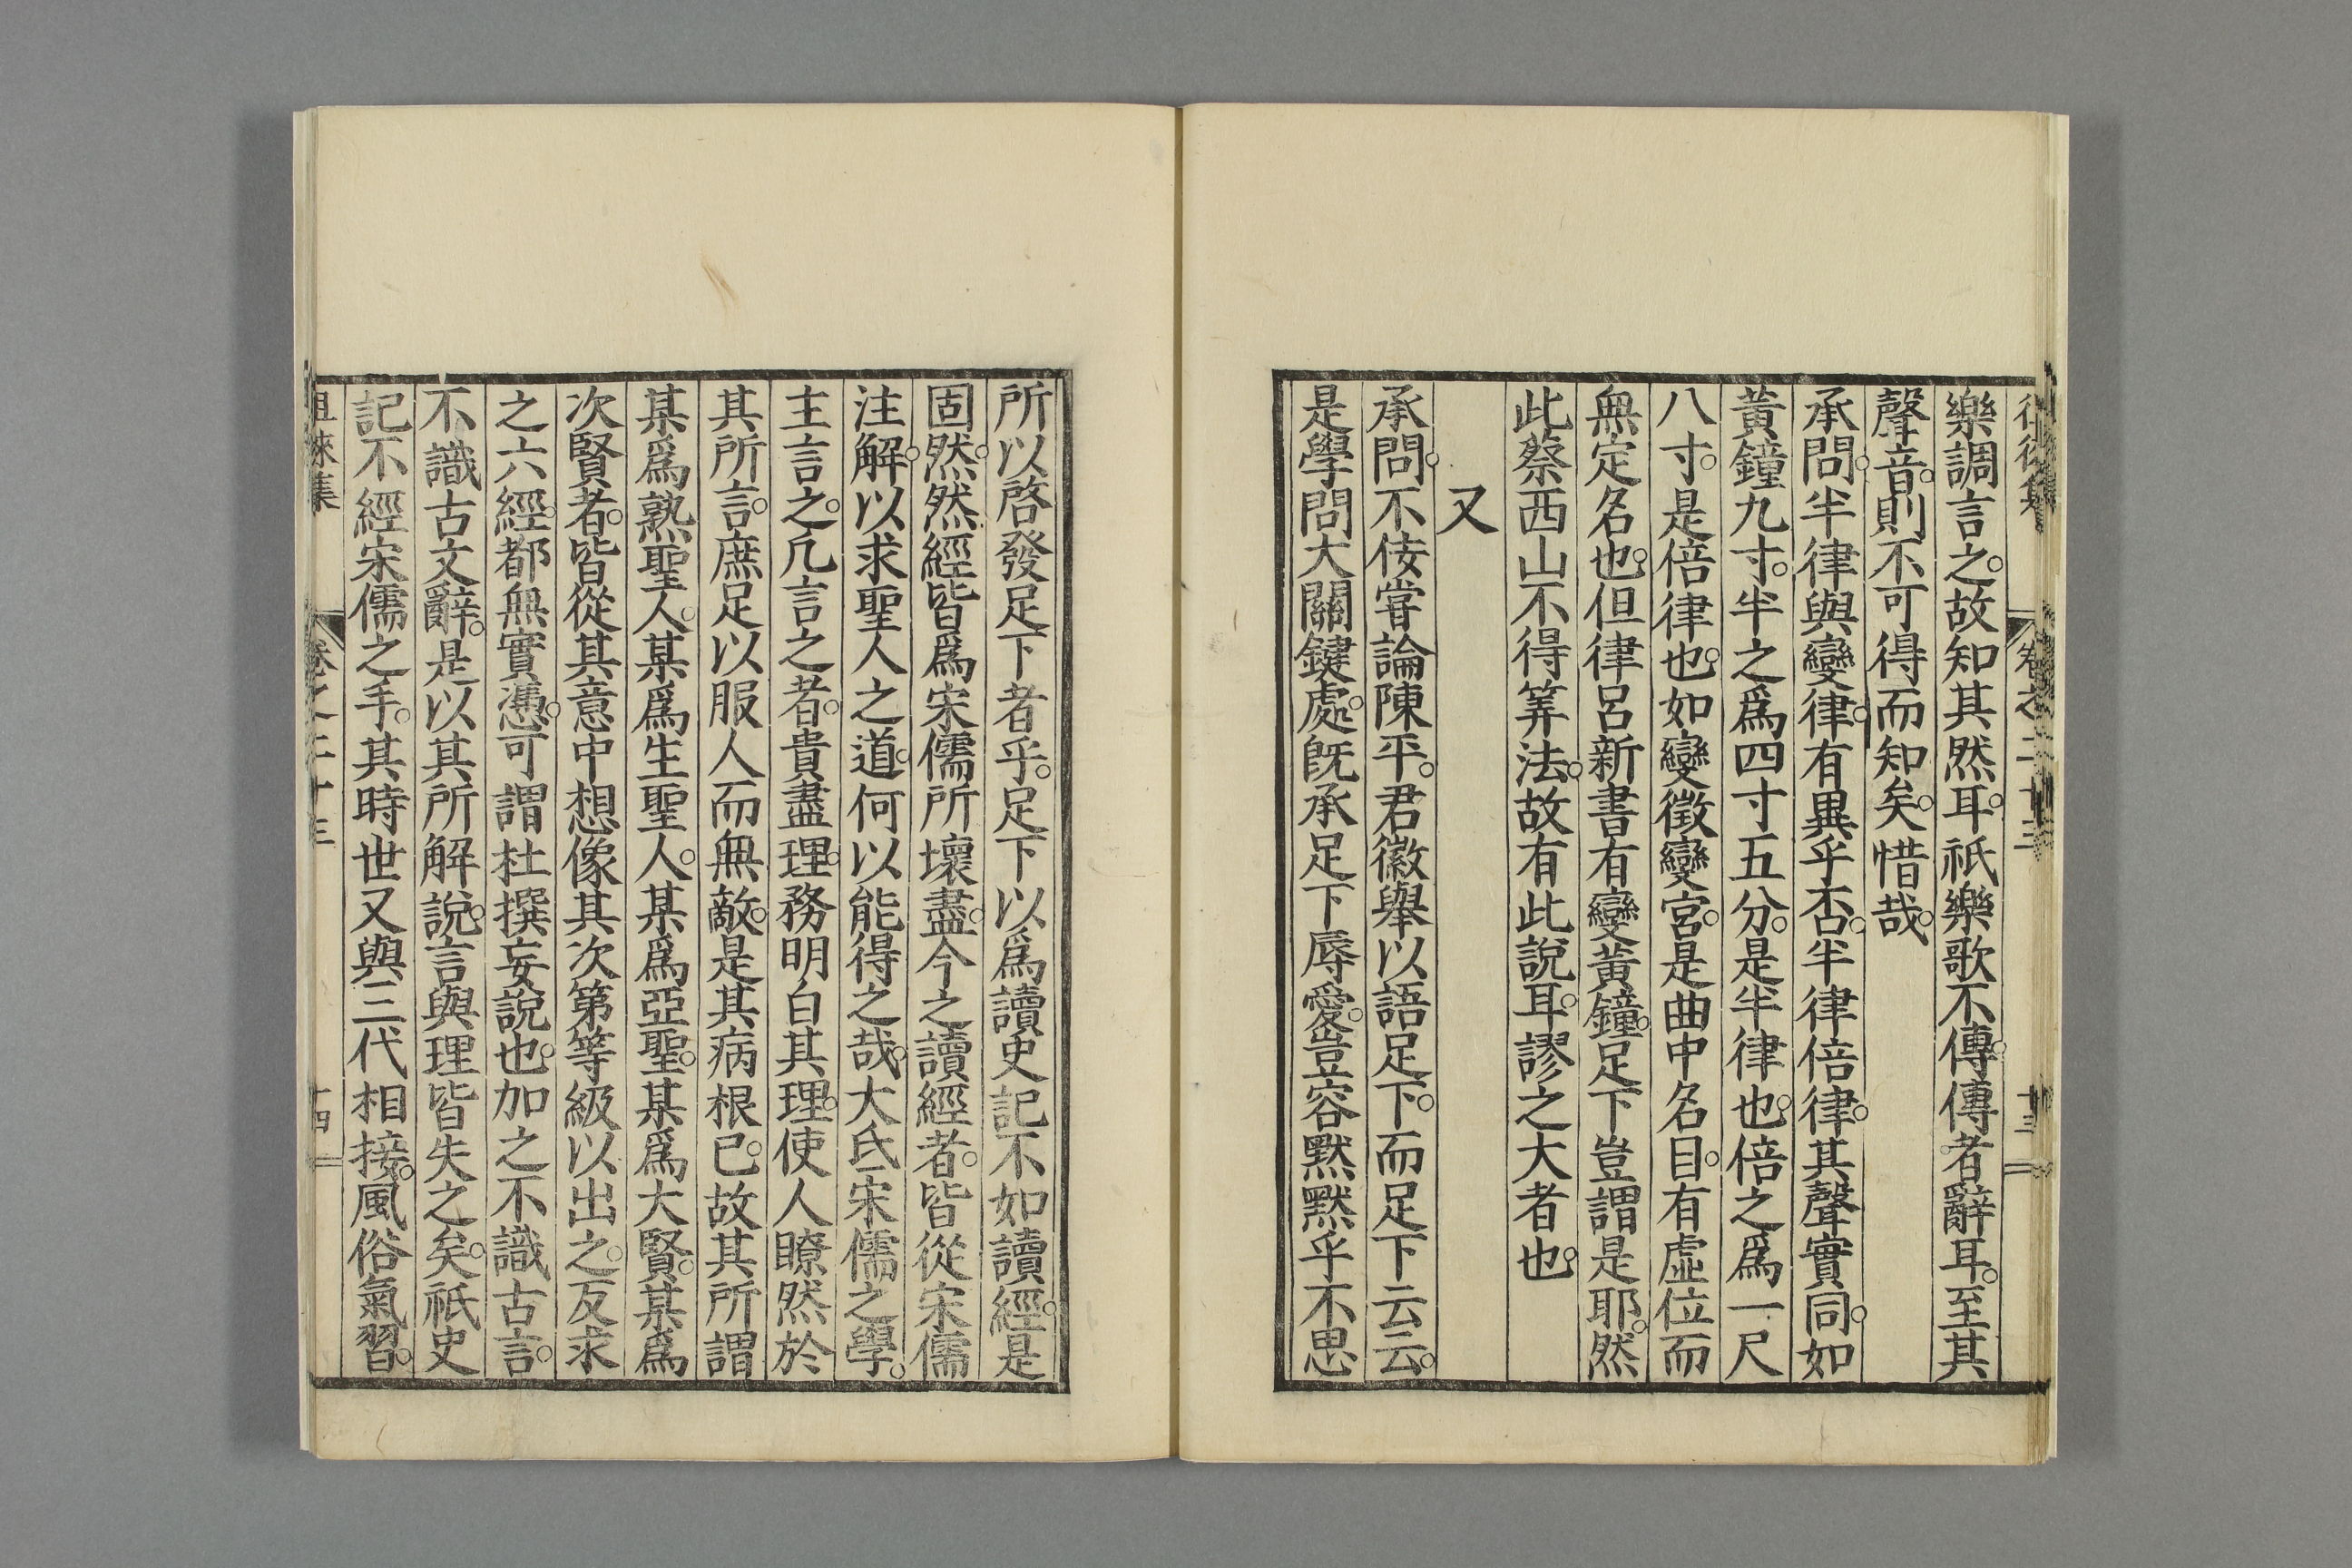 樂調言之。故知其然耳。祇樂歌不傳。傳者辭耳。至其
聲音。則不可得而知矣。惜哉。
承問。半律與變律。有異乎否。半律倍律。其聲實同。如
黃鐘九寸。半之爲四寸五分。是半律也。倍之爲一尺
八寸。是倍律也。如變徵變宮。是曲中名目。有虛位而
無定名也。但律呂新書有變黃鐘。足下豈謂是耶。然
此蔡西山不得筭法。故有此說耳。謬之大者也。
又
承問。不佞甞論陳平。君徽舉以語足下。而足下云云。
是學問大關鍵處。旣承足下辱愛。豈容默默乎。不思
所以啓發足下者乎。足下以爲讀史記不如讀經。是
固然。然經皆爲宋儒所壞盡。今之讀經者。皆從宋儒
注解。以求聖人之道。何以能得之哉。大氐宋儒之學。
主言之。凡言之者。貴盡理。務明白其理。使人瞭然於
其所言。庶足以服人而無敵。是其病根已。故其所謂
某爲熟聖人。某爲生聖人。某爲亞聖。某爲大賢。某爲
次賢者。皆從其意中想像其次第等級以出之。反求
之六經。都無實憑。可謂杜撰妄說也。加之不識古言。
不識古文辭。是以其所解說。言與理皆失之矣。祇史
記不經宋儒之手。其時世又與三代相接。風俗氣習。
徂徠集 卷之二十三 十四